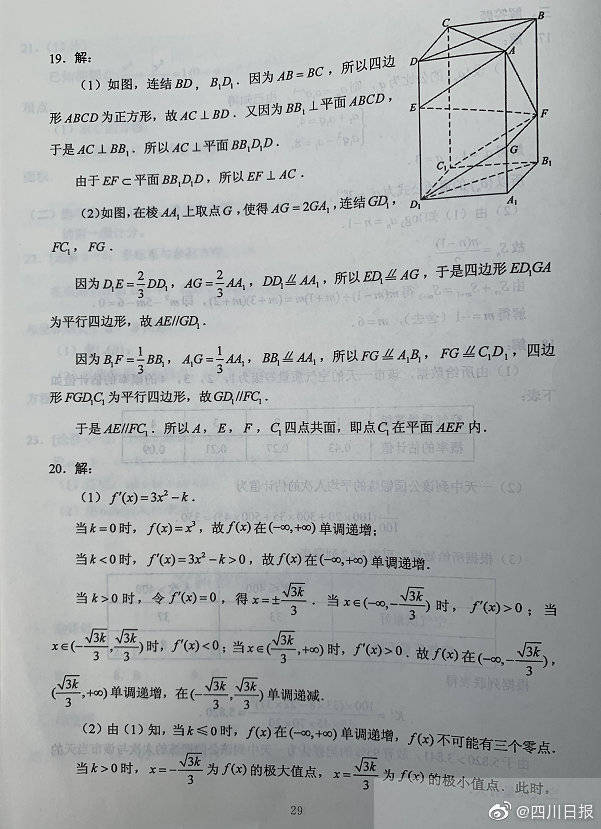 19. 解:
(1) 如图，连结BD，B₁D₁. 因为AB=BC，所以四边
形ABCD为正方形，故AC⊥BD. 又因为BB₁⊥平面ABCD，
于是AC⊥BB₁. 所以AC⊥平面BB₁D₁D.
由于EF⊂平面BB₁D₁D，所以EF⊥AC.
(2)如图，在棱AA₁上取点G，使得AG=2GA₁，连结GD₁，
FC₁，FG.
C
B
D
A
E
F
G
C₁
B₁
D₁
A₁
因为D₁E=2/3DD₁，AG=2/3AA₁，DD₁⫽AA₁，所以ED₁⫽AG，于是四边形ED₁GA
为平行四边形，故AE//GD₁.
因为B₁F=1/3BB₁，A₁G=1/3AA₁，BB₁⫽AA₁，所以FG⫽A₁B₁，FG⫽C₁D₁，四边
形FGD₁C₁为平行四边形，故GD₁//FC₁.
于是AE//FC₁. 所以A，E，F，C₁四点共面，即点C₁在平面AEF内.
20. 解:
(1) f′(x)=3x²-k.
当k=0时，f(x)=x³，故f(x)在(-∞,+∞)单调递增;
当k<0时，f′(x)=3x²-k>0，故f(x)在(-∞,+∞)单调递增.
当k>0时，令f′(x)=0，得x=±√3k/3. 当x∈(-∞,-√3k/3)时，f′(x)>0；当
x∈(-√3k/3,√3k/3)时，f′(x)<0；当x∈(√3k/3,+∞)时，f′(x)>0. 故f(x)在(-∞,-√3k/3)，
(√3k/3,+∞)单调递增，在(-√3k/3,√3k/3)单调递减.
(2) 由(1)知，当k≤0时，f(x)在(-∞,+∞)单调递增，f(x)不可能有三个零点.
当k>0时，x=-√3k/3为f(x)的极大值点，x=√3k/3为f(x)的极小值点. 此时，
29
@四川日报